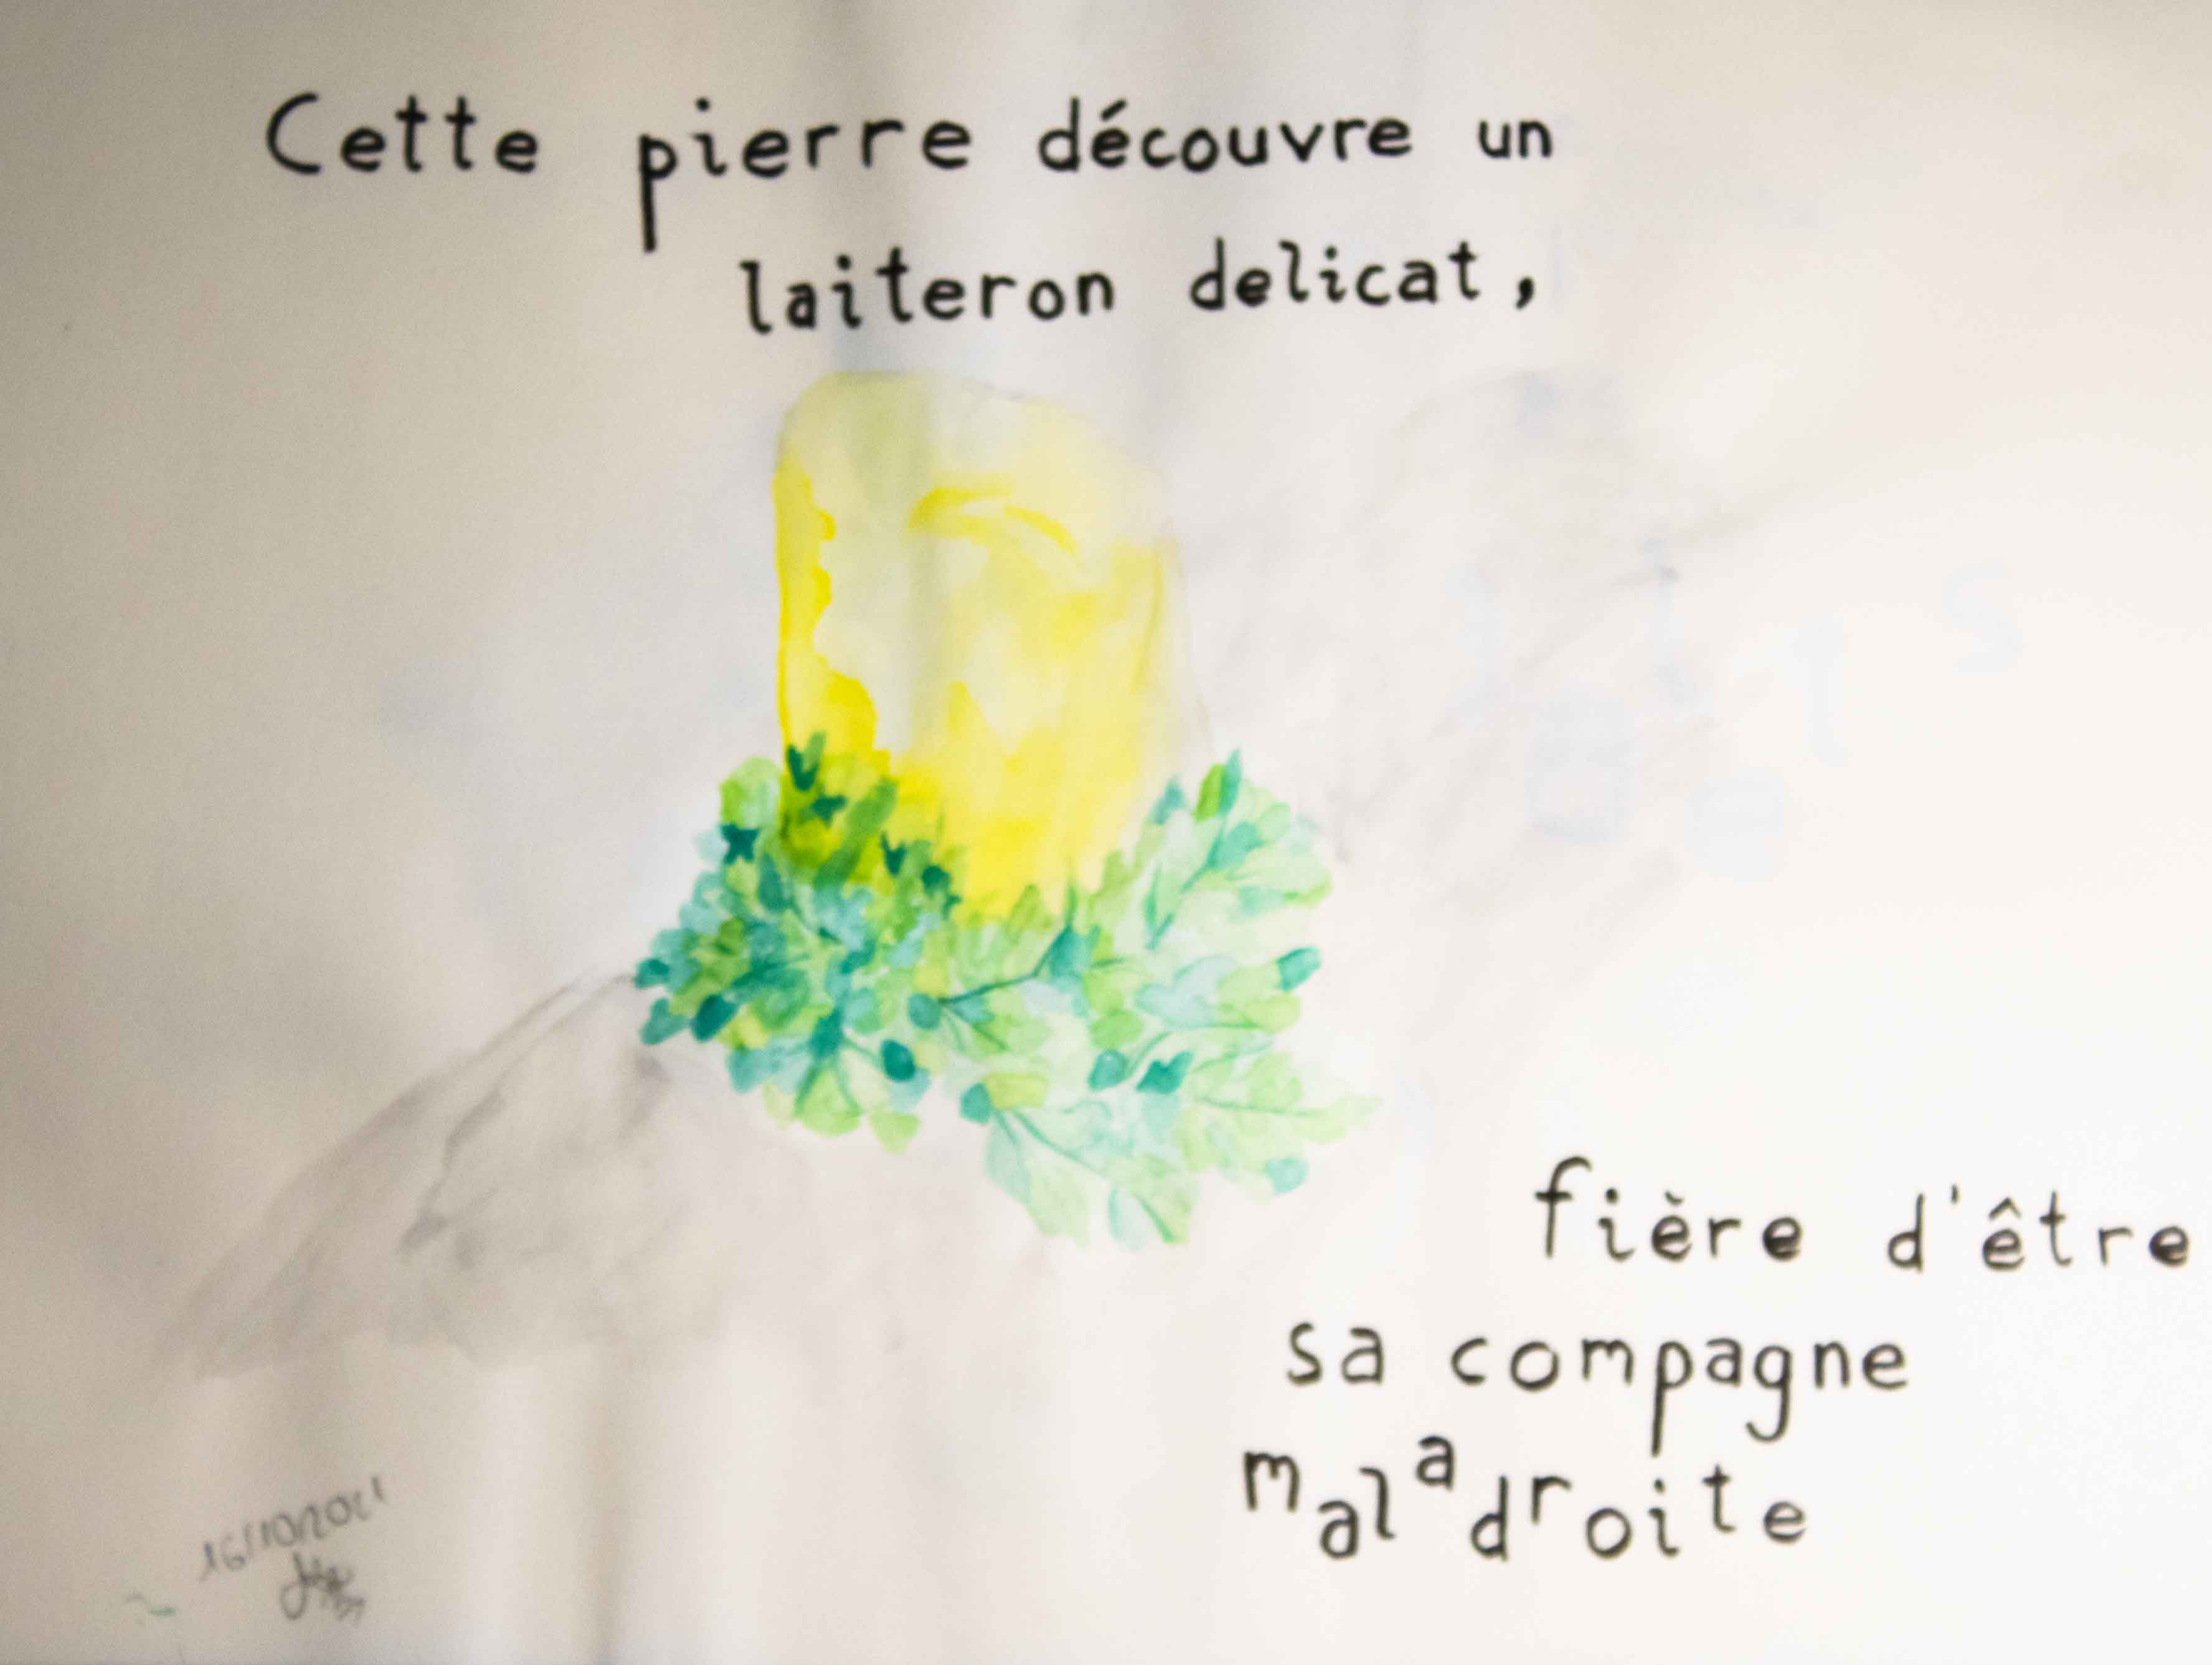 Cette pierre découvre un
laiteron delicat,
fière d'être
sa compagne
maladroite